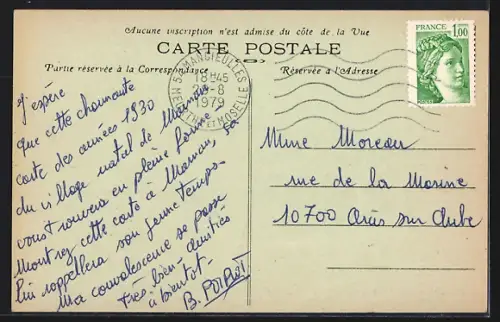 Aucune inscription n'est admise du côté de la Vue
CARTE POSTALE
Partie réservée à la Correspondance
Réservée à l'Adresse
FRANCE
1,00
54 MANCIEULLES
18H45
2 -8
1979
MEURTHE ET MOSELLE
J'espère
que cette charmante
carte des années 1930
du village natal de Maman
vous trouvera en pleine forme
Montrez cette carte à Maman, ça
lui rappellera son jeune temps.
Ma convalescence se passe
très bien. amitiés
à bientôt.
B. POIROT
Mme Moreau
rue de la Marine
10700 Arcis sur Aube